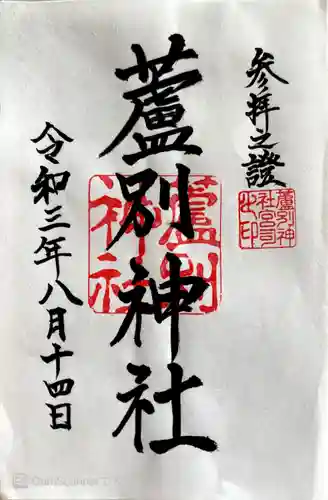 參拝之證
蘆別神社
蘆別神社
蘆別神
社宮司
之印
令和三年八月十四日
CamScanner